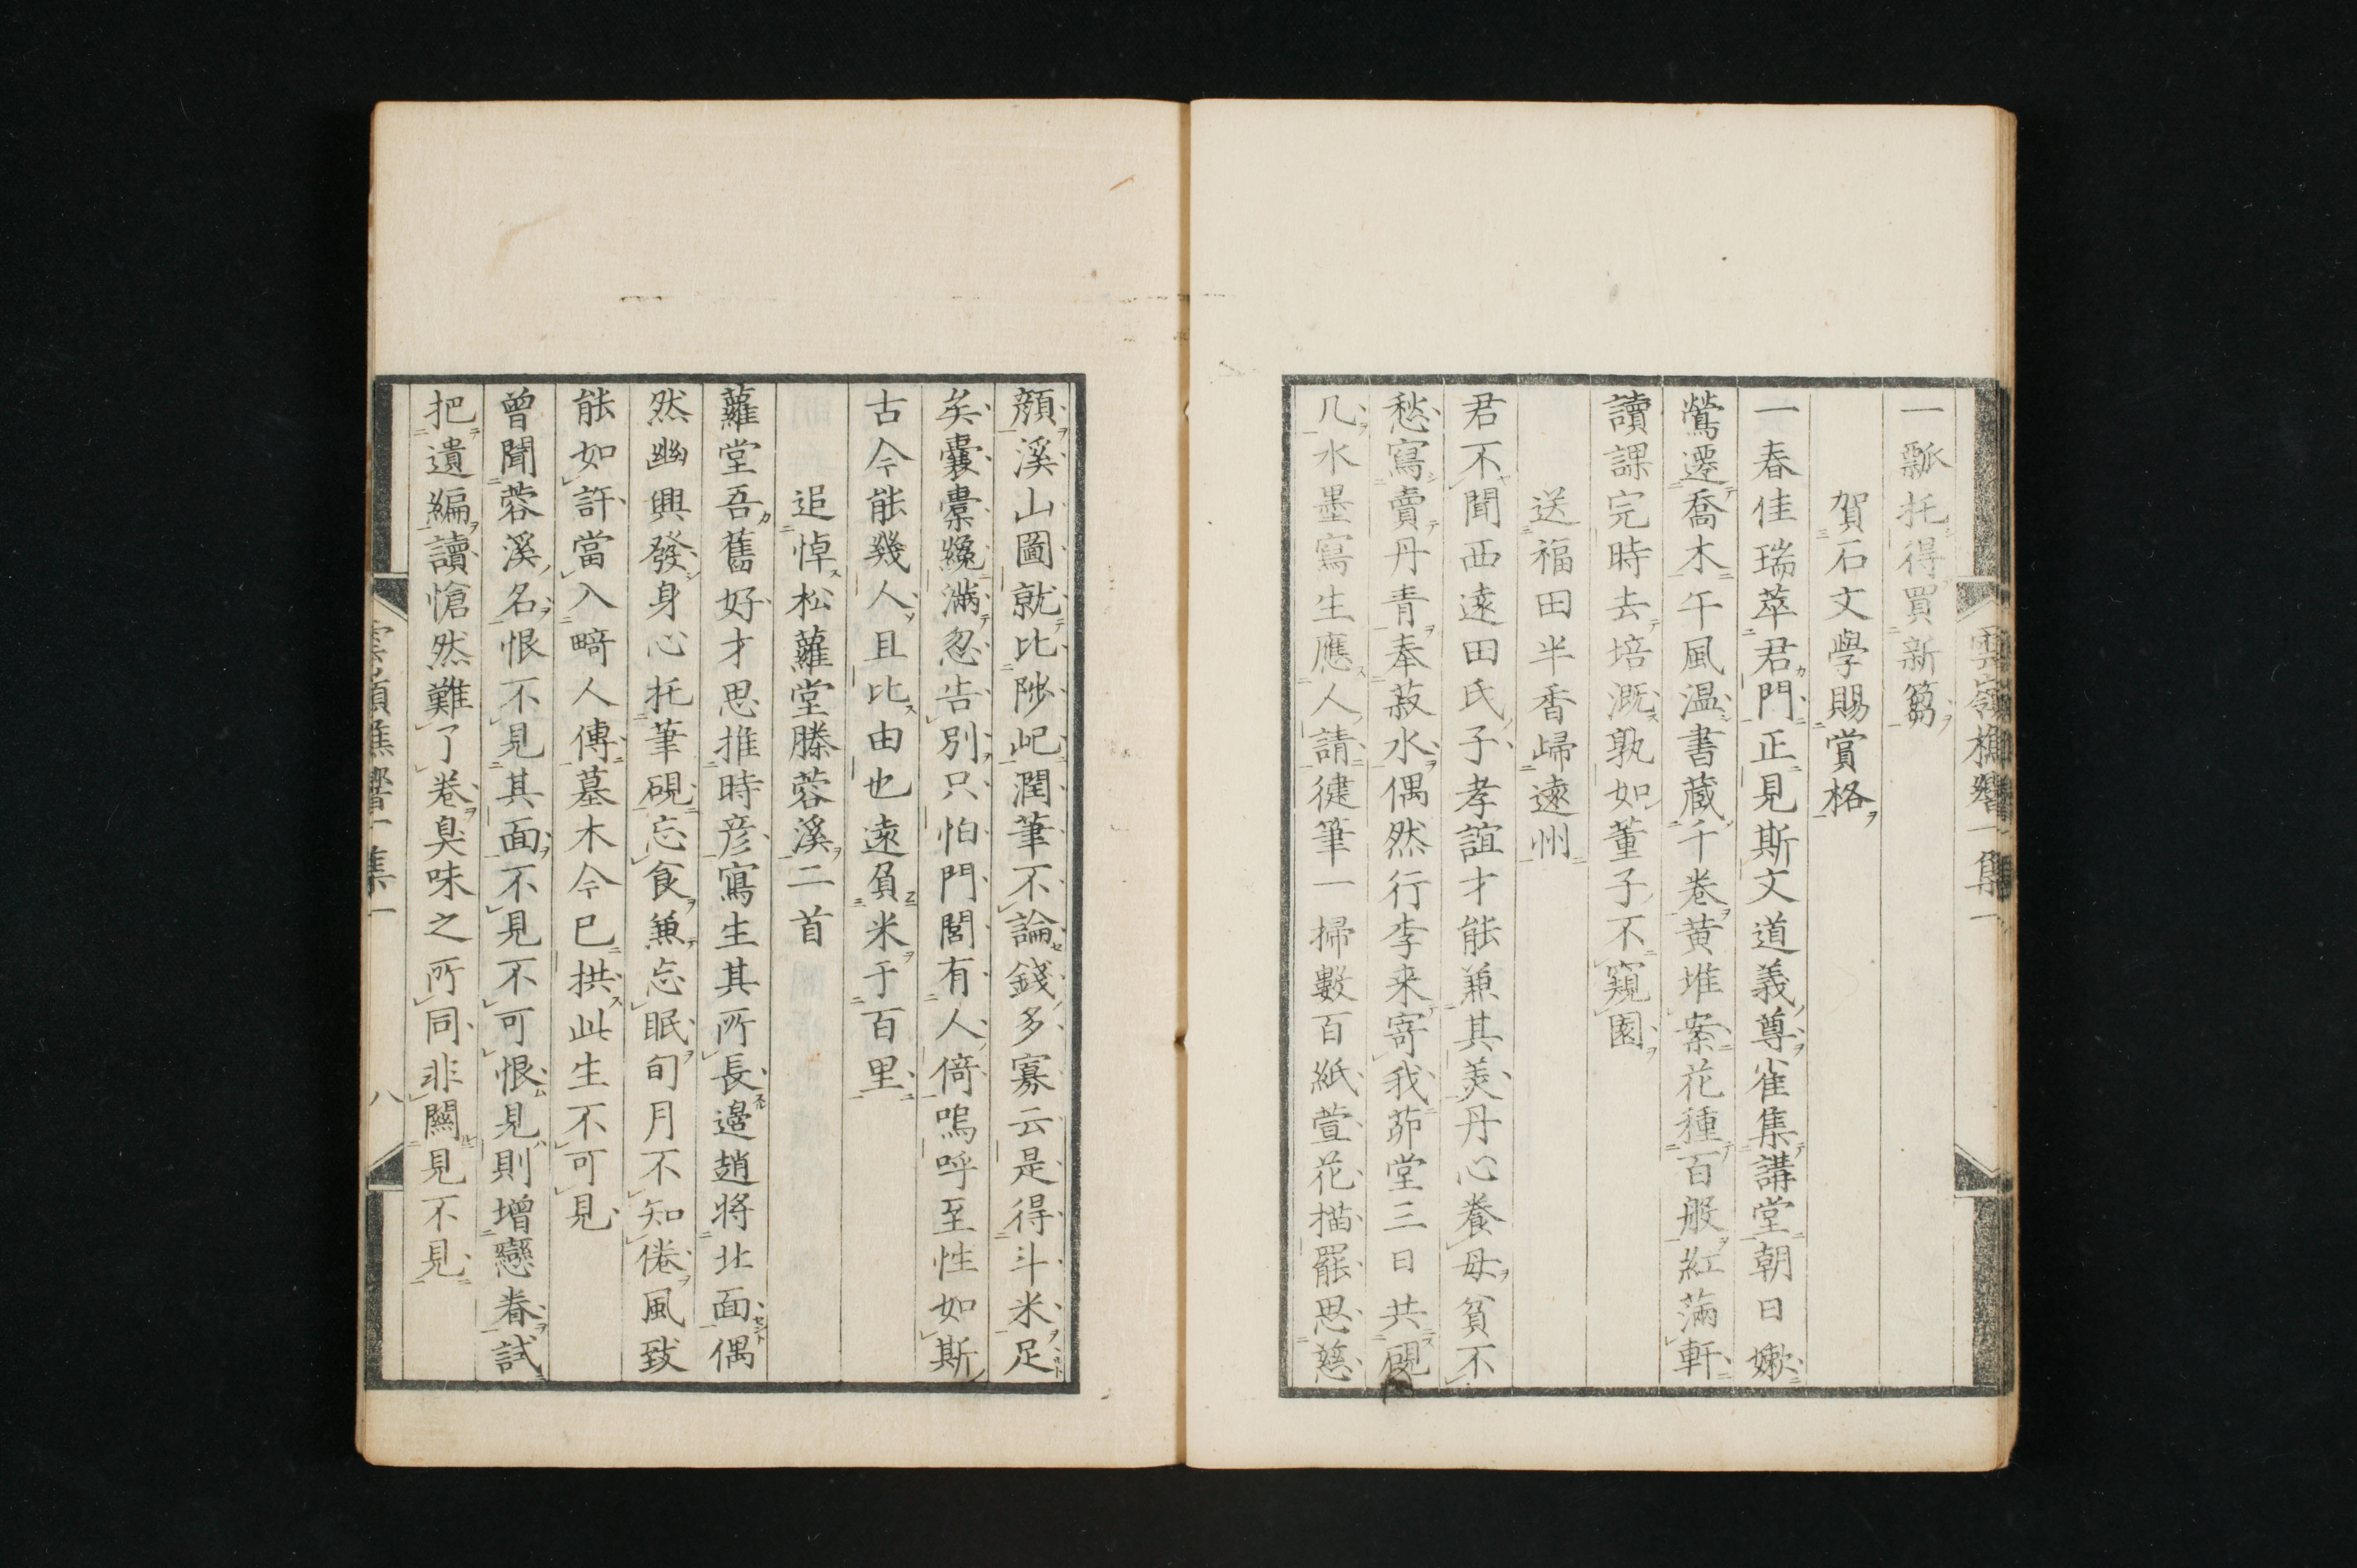 雲嶺樵響一集一
一瓢托得買新篘
賀石文學賜賞格
一春佳瑞萃君門正見斯文道義尊雀集講堂朝日嫩
鶯遷喬木午風温書蔵千卷黄堆案花種百般紅滿軒
讀課完時去培漑孰如董子不窺園
送福田半香歸遠州
君不聞西遠田氏子孝誼才能兼其美丹心養母貧不
愁寫賣丹青奉菽水偶然行李来寄我茆堂三日共硯
几水墨寫生應人請健筆一掃數百紙萱花描罷思慈
顔溪山圖就比陟屺潤筆不論錢多寡云是得斗米足
矣囊橐纔滿忽告別只怕門閭有人倚嗚呼至性如斯
古今能幾人且比由也遠負米于百里
追悼松蘿堂滕蓉溪二首
蘿堂吾舊好才思推時彦寫生其所長邉趙将北面偶
然幽興發身心托筆硯忘食兼忘眠旬月不知倦風致
能如許當入畸人傳墓木今巳拱此生不可見
曾聞蓉溪名恨不見其面不見不可恨見則增戀眷試
把遺編讀愴然難了卷臭味之所同非關見不見
雲嶺樵響一集一
八